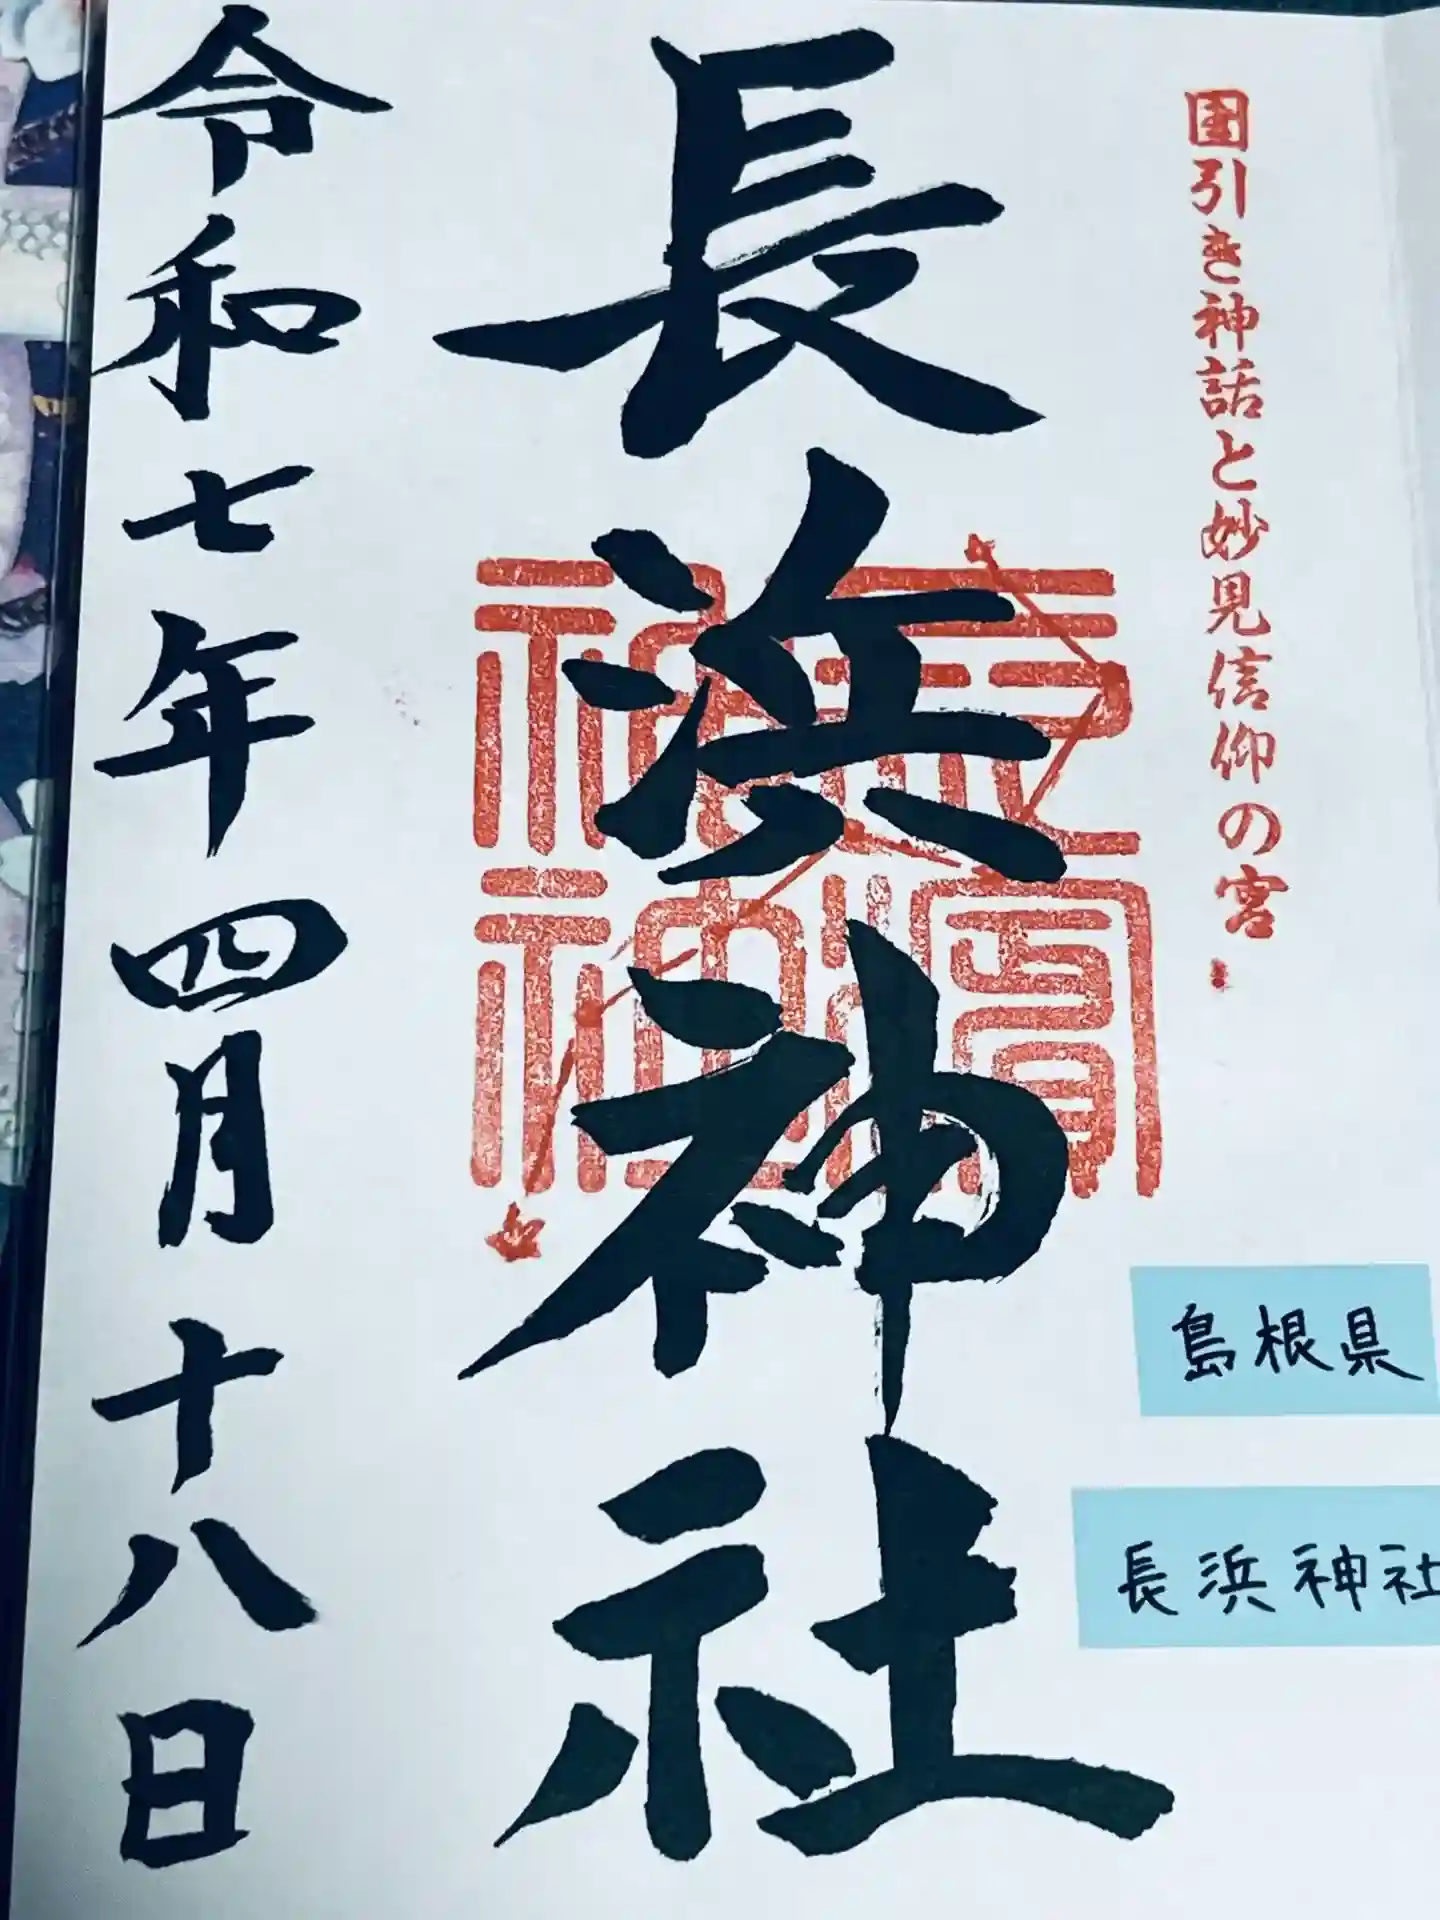 国引き神話と妙見信仰の宮
長浜神社
令和七年四月十八日
長濱神社
島根県
長浜神社